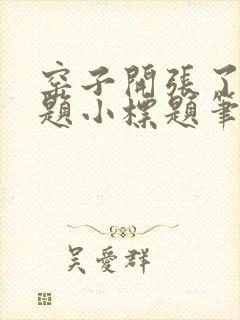 窑子開張了
題小標題筆
吳愛群